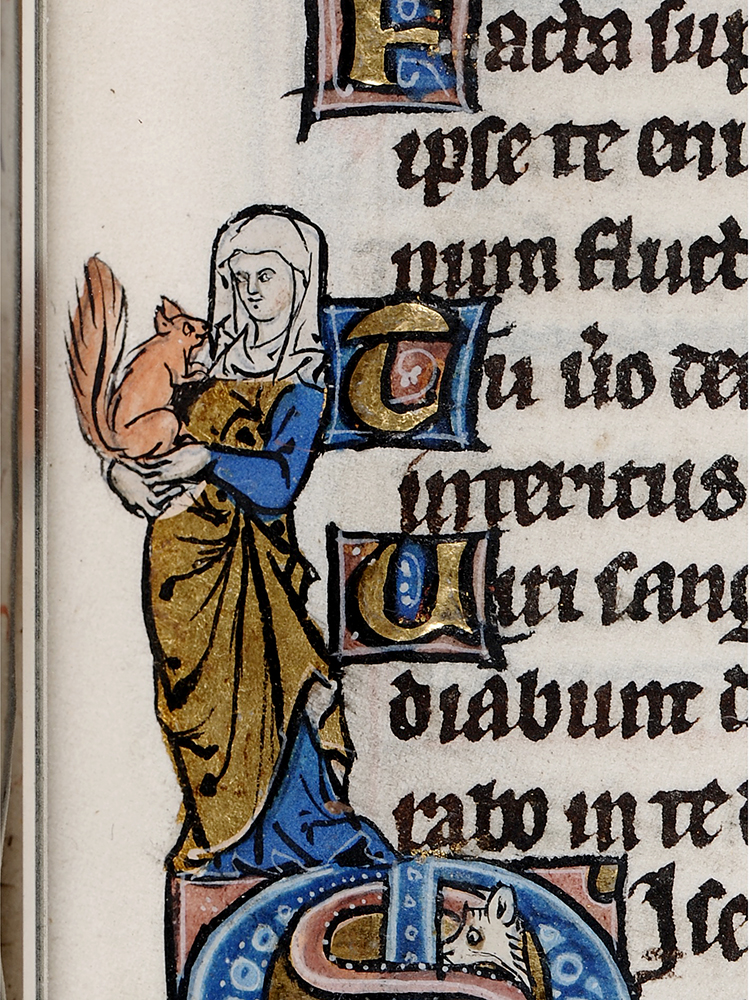 Facta sup
ipse te enu
num fluct
Tu u̾o de
interitus
Uiri sang
diabunt d
rabo in te d
MIse